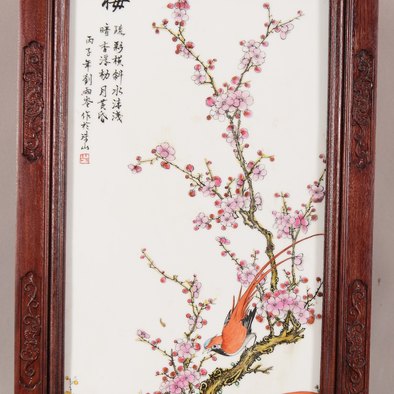 梅
疏影横斜水清浅
暗香浮動月黄昏
丙子年劉雨岑作於珠山